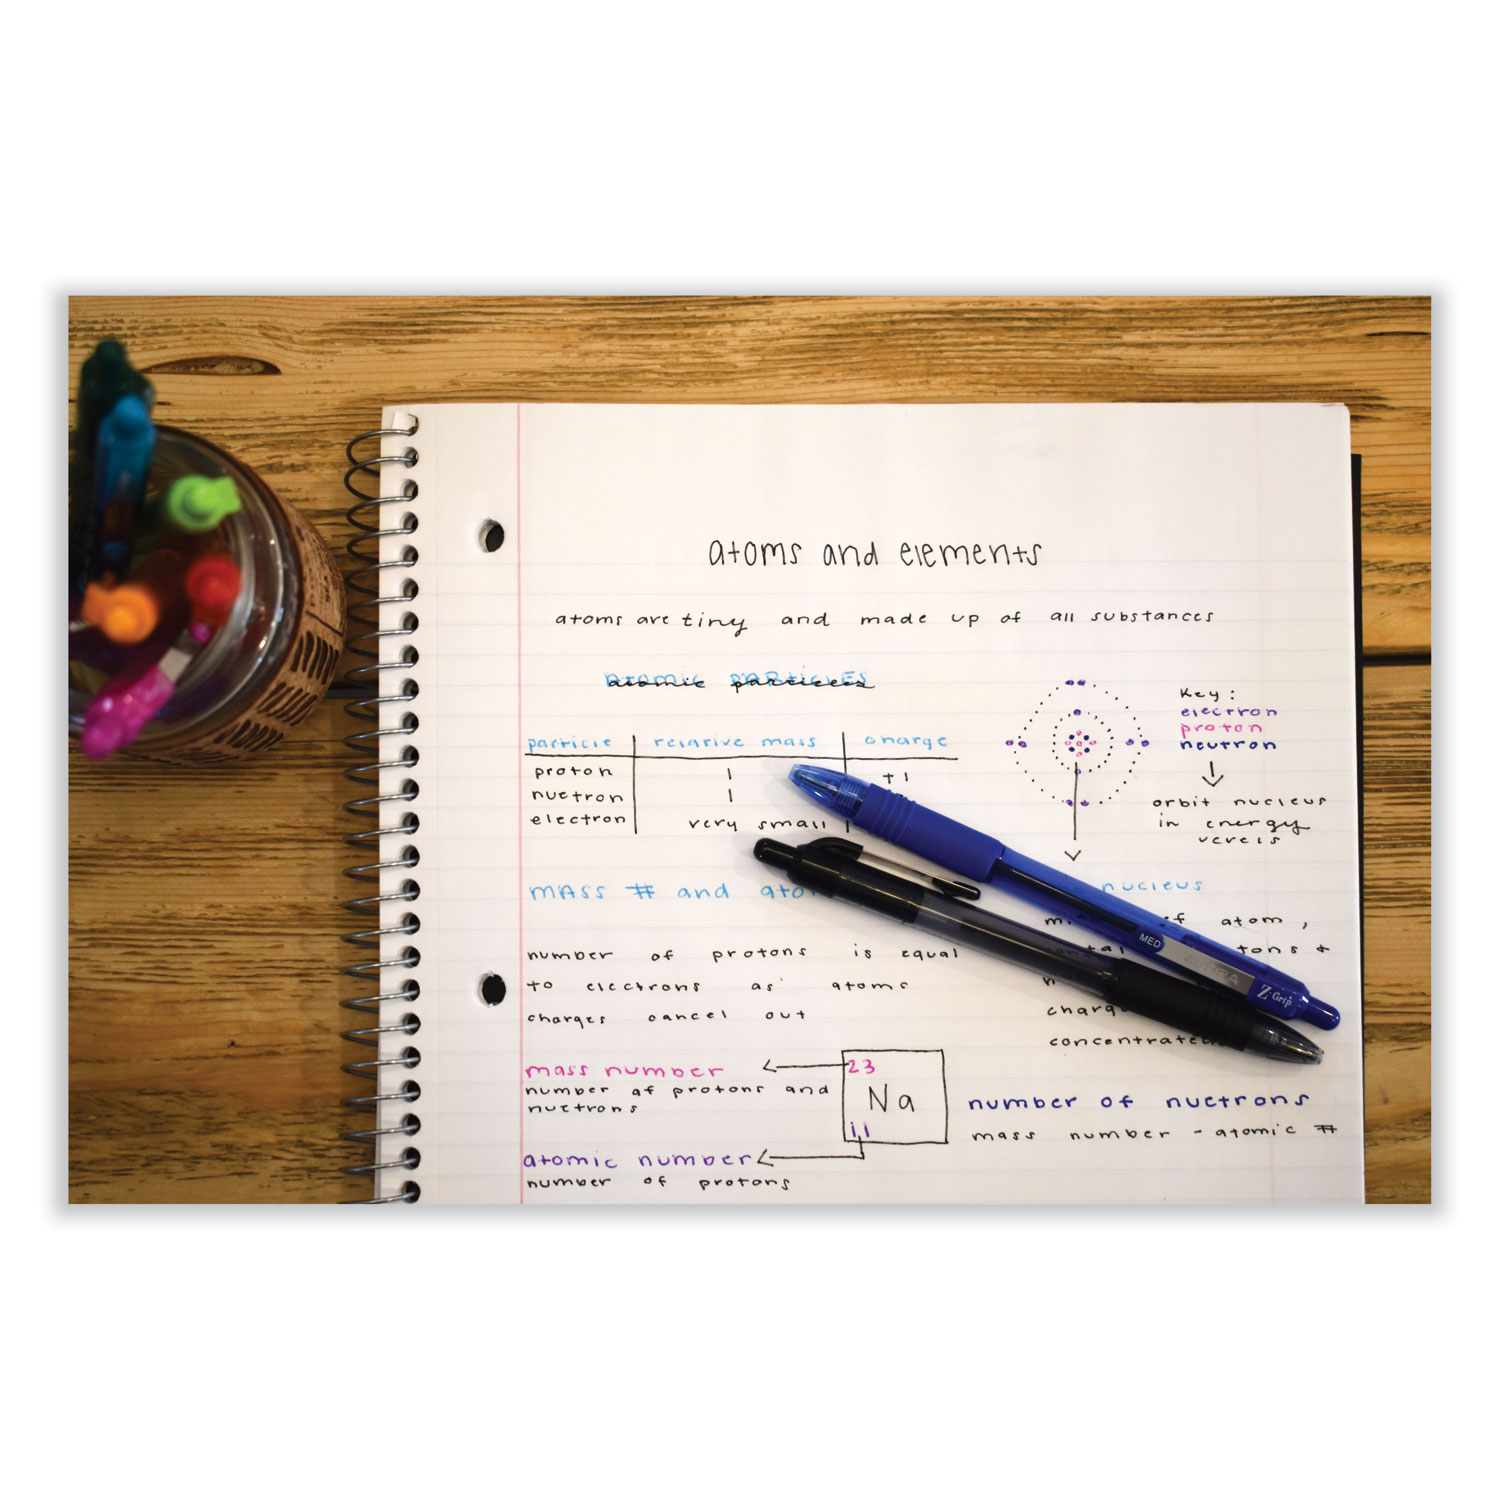 atoms and elements
atoms are tiny and made up of all substances
atomic particles
Key:
electron
proton
neutron
orbit nucleus
in energy
particle relative mass charge
proton 1 +1
nuetron 1
electron very small
mass # and
nucleus
atom,
number of protons is equal
to electrons as atoms
charges cancel out
mass number
number of protons and
nuetrons
23
Na
11
atomic number
number of protons
number of nuetrons
mass number - atomic #
MED
ZEBRA
Z-Grip